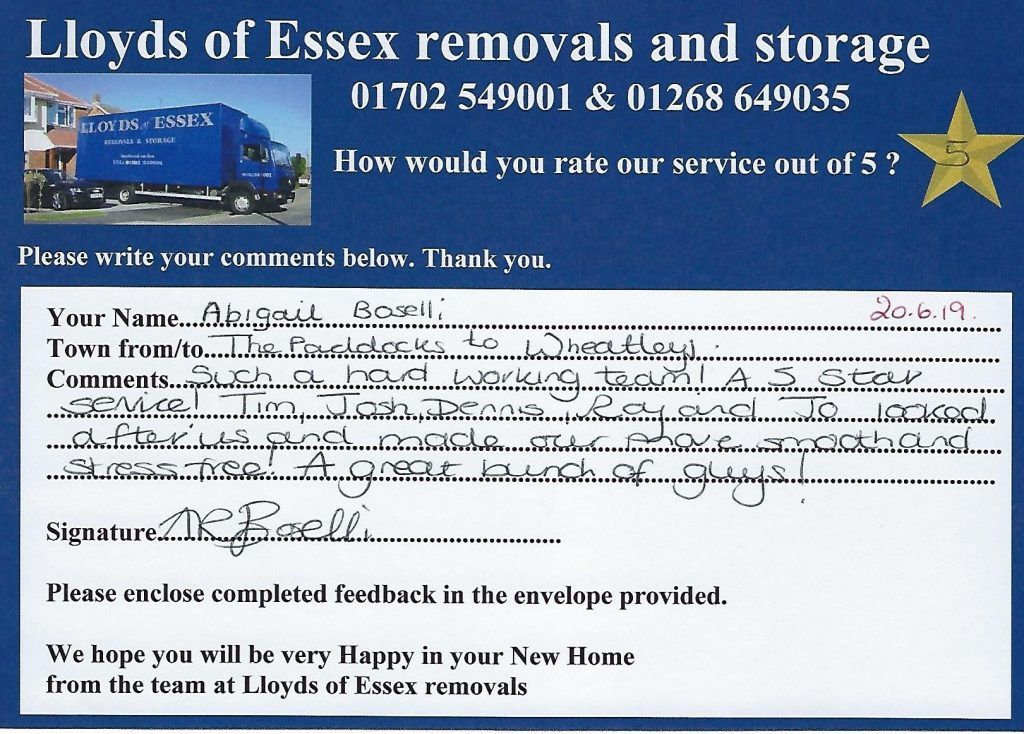 Lloyds of Essex removals and storage
01702 549001 & 01268 649035
LLOYDS of ESSEX
REMOVALS & STORAGE
How would you rate our service out of 5 ?
5
Please write your comments below. Thank you.
20.6.19.
Your Name Abigail Boselli
Town from/to The Paddocks to Wheatleys.
Comments Such a hard working team! A 5 star
service! Tim, Josh, Dennis, Ray and Jo looked
after us and made our move smooth and
stress free! A great bunch of guys!
Signature ARBoselli
Please enclose completed feedback in the envelope provided.
We hope you will be very Happy in your New Home
from the team at Lloyds of Essex removals